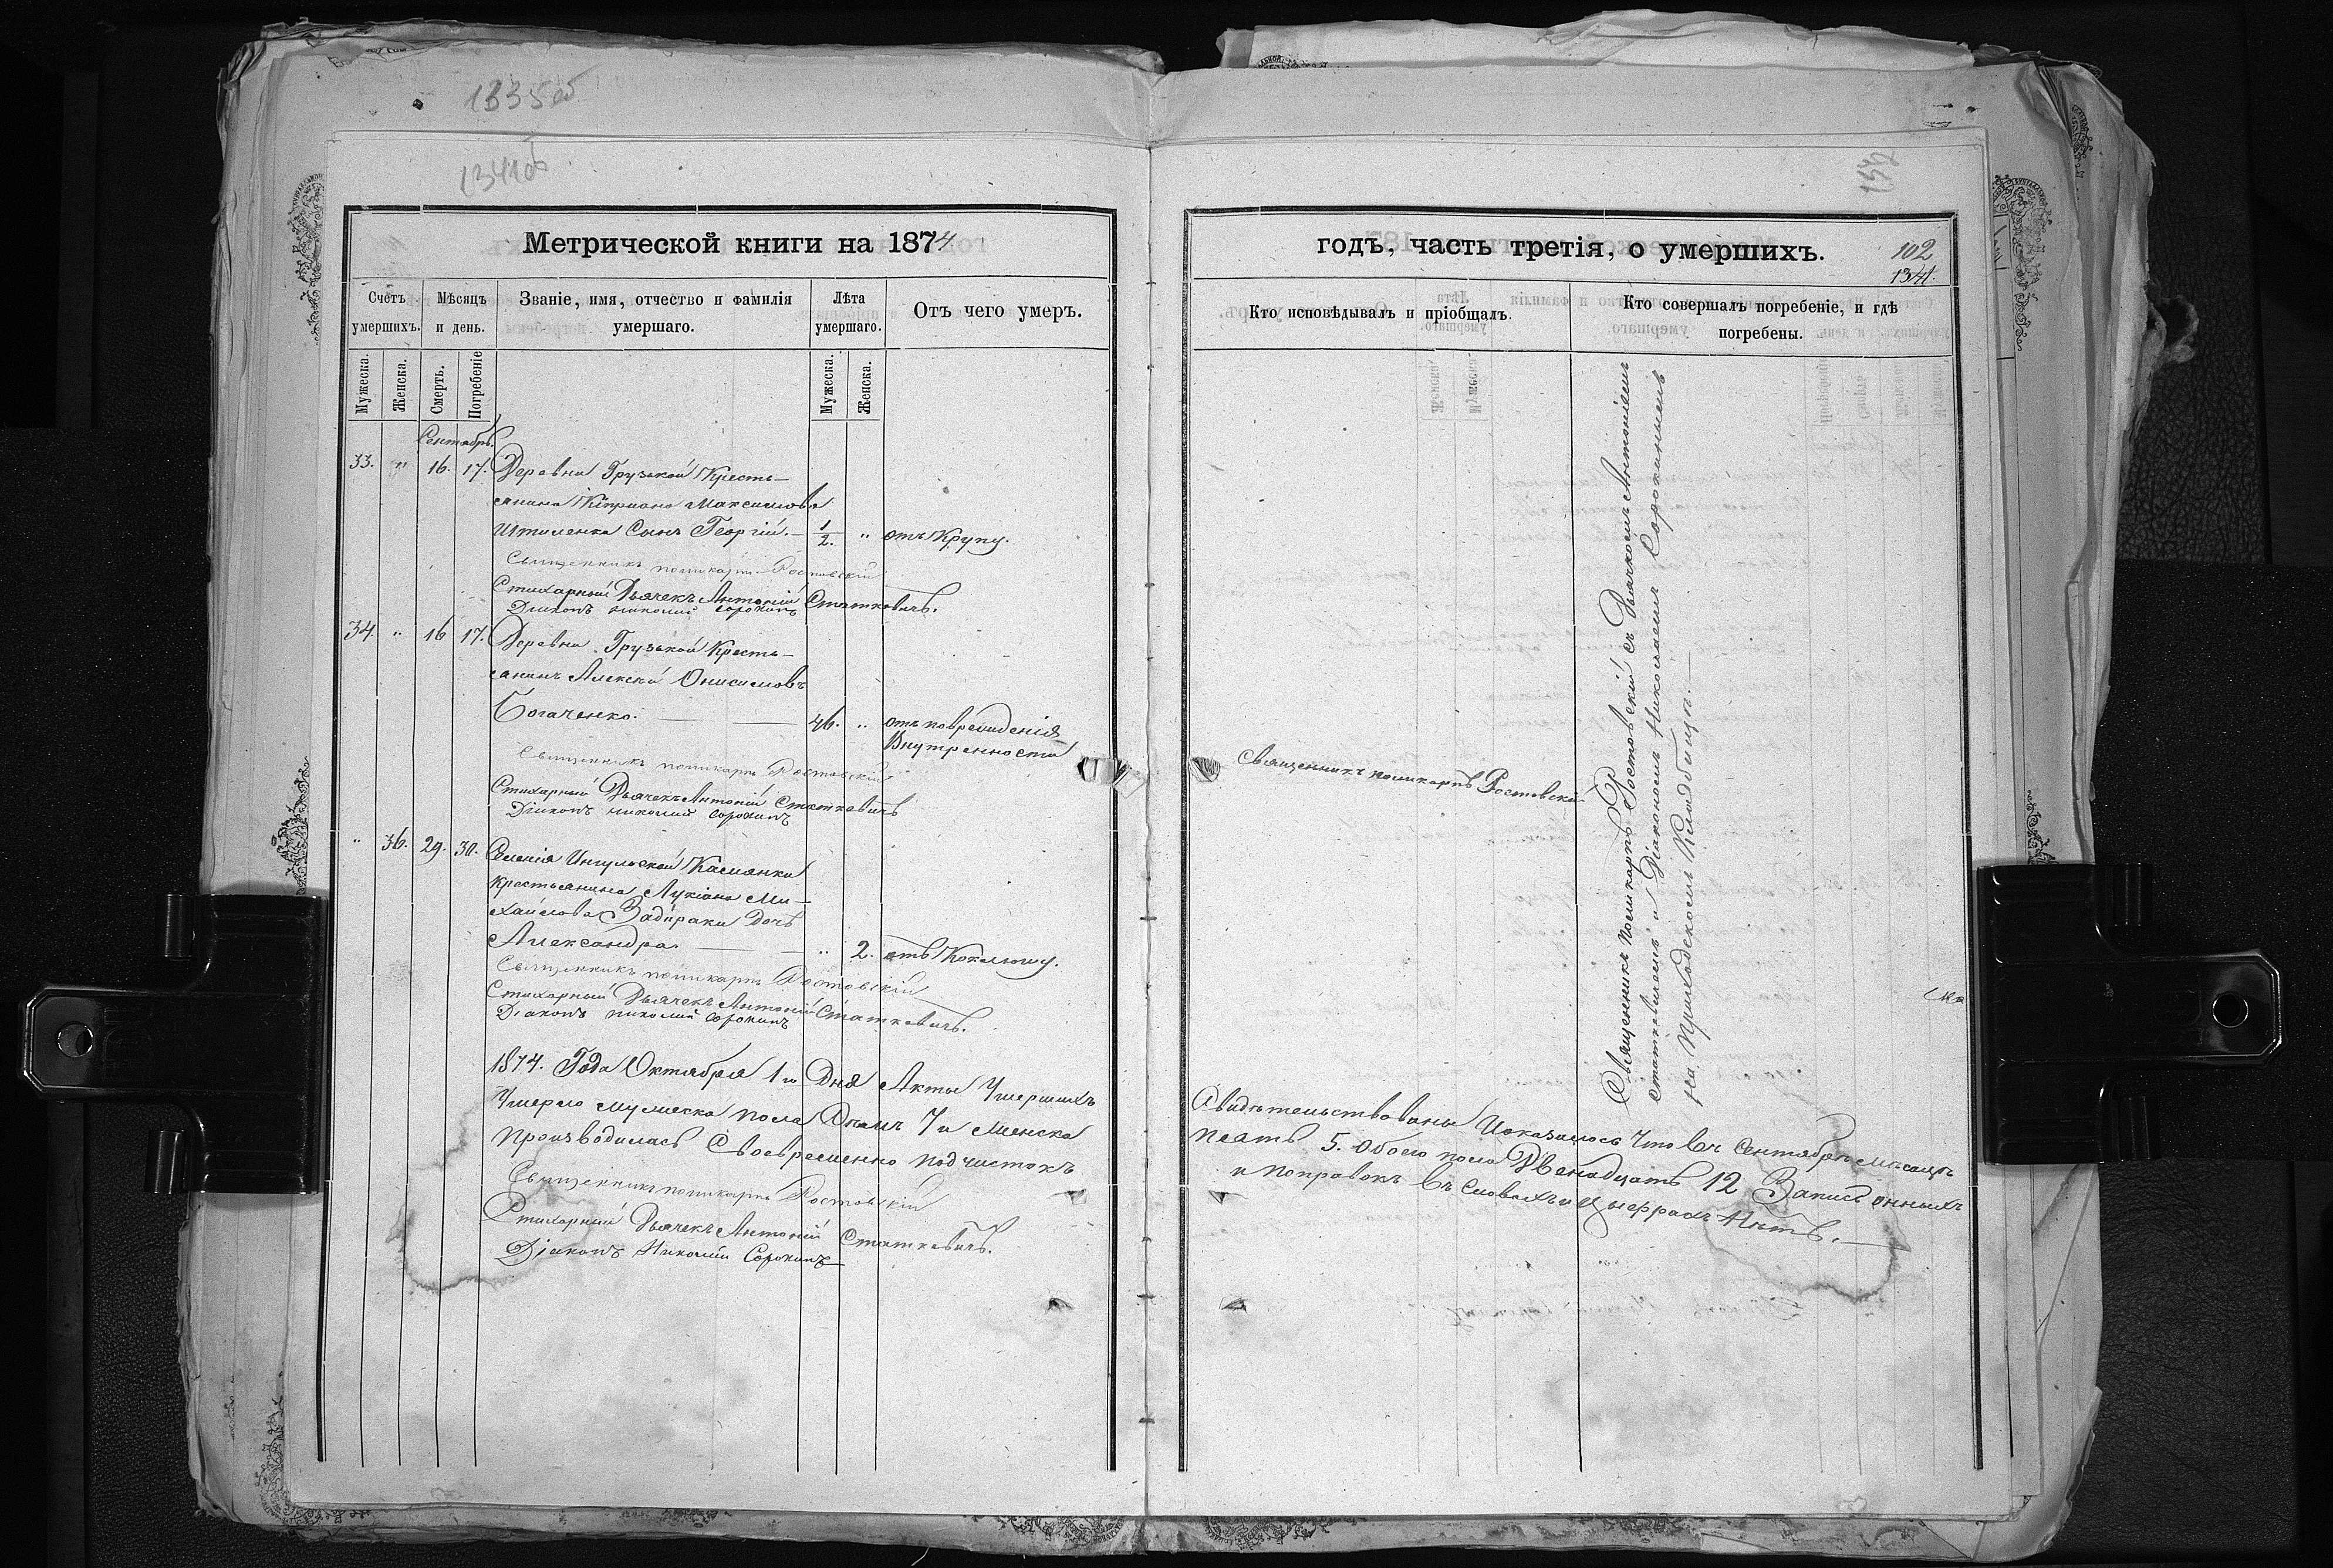 1335об
1341об
132
Метрической книги на 1874
годъ, часть третія, о умершихъ.
102
1341.
Счетъ умершихъ.
Мѣсяцъ и день.
Званіе, имя, отчество и фамилія умершаго.
Лѣта умершаго.
Отъ чего умеръ.
Кто исповѣдывалъ и пріобщалъ.
Кто совершалъ погребеніе, и гдѣ погребены.
Мужеска.
Женска.
Смерть.
Погребеніе
Мужеска.
Женска.
Сентябрь.
33. " 16. 17. Деревни Грузькой Кресть-
янина Кипріана Максимова
Сынъ Георгій. - 1/2. " отъ Крупу.
Священникъ поликарпъ Ростовскій
Стихарный Дьячекъ Антоній Статкевичъ.
Діаконъ николай сорокинъ
34. " 16 17. Деревни Грузькой Кресть-
янинъ Алексѣй Онисимовъ
Богаченко. — — 46. " отъ поврежденія
Внутренности
Священникъ поликарпъ Ростовскій
Стихарный Дьячекъ Антоній Статкевичъ
Діаконъ николай сорокинъ
" 36. 29. 30. Селенія Ингульской Каменки
Крестьянина Лукіана Ми-
хайлова Задираки Дочь
Александра. — — " 2. отъ Коклюшу.
Священникъ поликарпъ Ростовскій
Стихарный Дьячекъ Антоній Статкевичъ.
Діаконъ николай сорокинъ
Священникъ поликарпъ Ростовскій
Священникъ Поликарпъ Ростовскій съ Дьячкомъ Антоніемъ
Статкевичемъ и Діакономъ Николаемъ Сорокинымъ
на Приходскомъ Кладбищѣ. —
1874. Года Октября 1го Дня Акты Умершихъ Свидѣтельствованы Иоказалось Что Въ Сентябрѣ мѣсацѣ
Умерло мужеска пола Семь 7 и Женска пеать 5. Обоего пола Двенадцать 12 Запись онныхъ
производилась Своевременно подчистокъ и поправокъ въ Словахъ и Цыфрахъ Нѣтъ. —
Священникъ поликарпъ Ростовскій
Стихарный Дьячекъ Антоній Статкевичъ.
Діаконъ Николай Сорокинъ